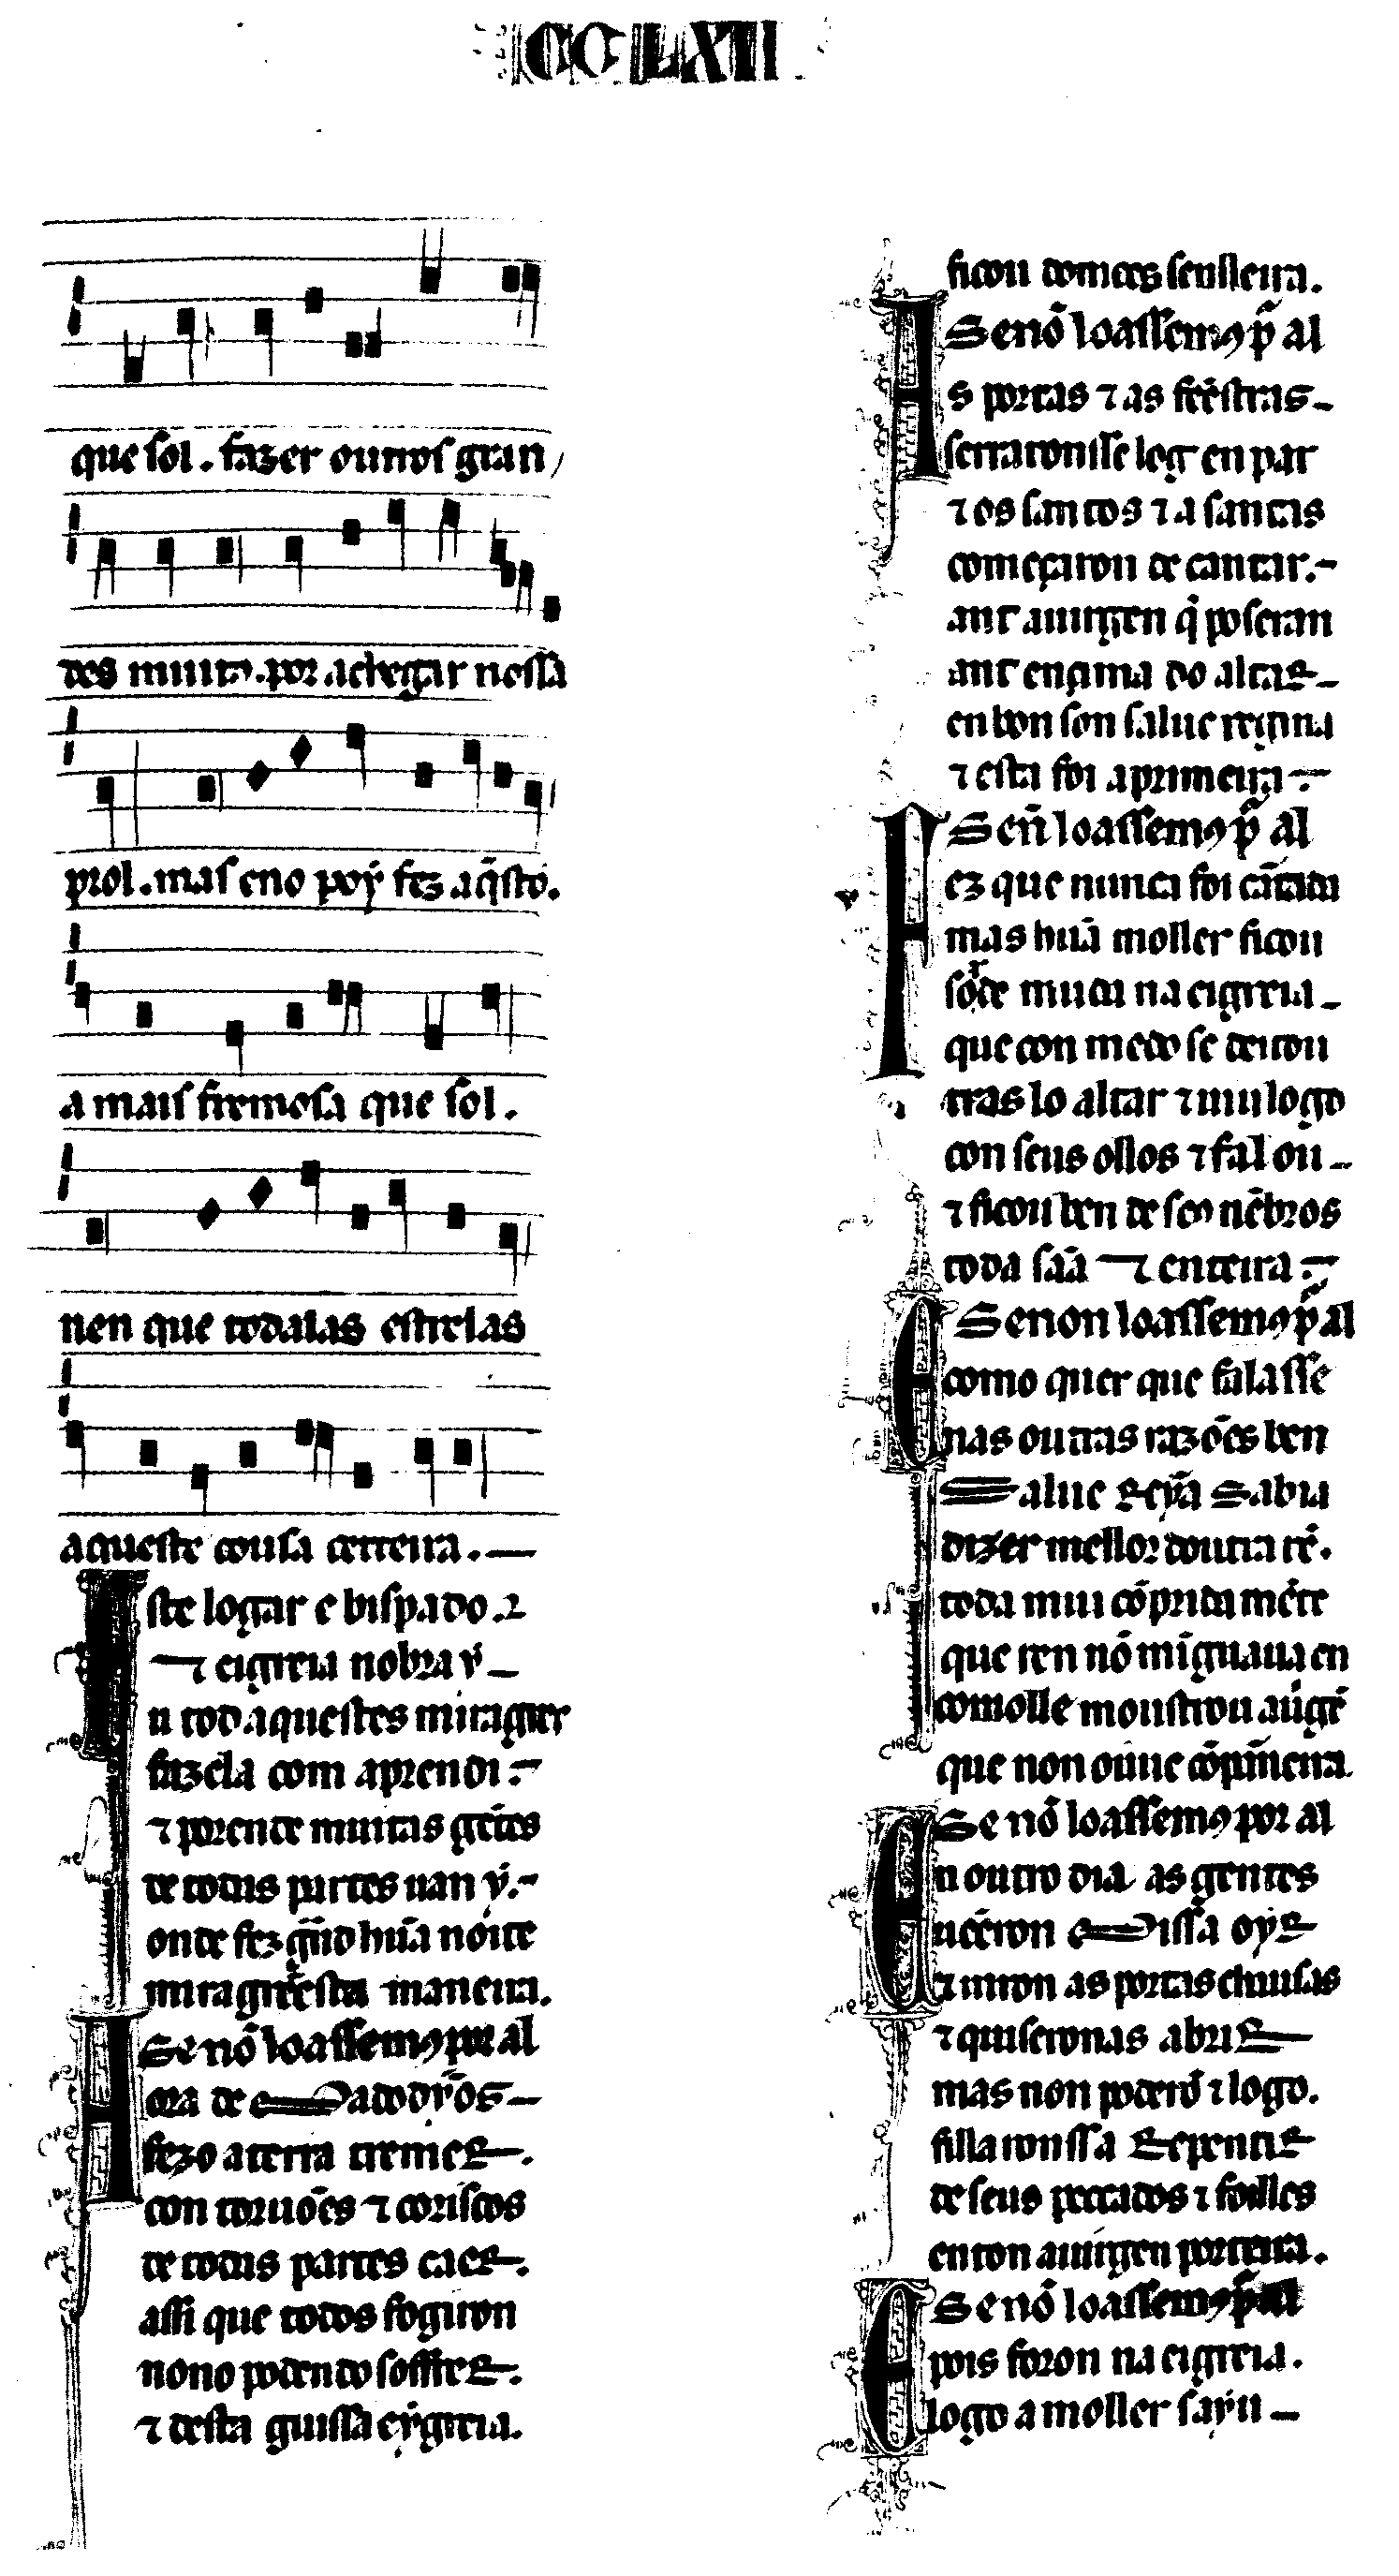 CCLXII
que sol. fazer outros gran
des muito. por achegar nossa
prol. mas eno poẏ fez aq̃sto.
a mais fremosa que sol.
nen que todalas estrelas
aqueste cousa certeira.
Este logar e bispado.
⁊ eigreia nobra ẏ
u tod aquestes miragres
fazela com aprendi
⁊ porende muitas gẽtes
de todas partes uan ẏ.
onde fez grãd hũa noite
miragre desta maneira.
Se nõ loassemꝯ por al
Ora de Madodỹos
fezo a terra tremer.
con toruões ⁊ coriscos
de todas partes caer.
assi que todos fogiron
nono podendo soffrer.
⁊ desta guissa eẏgreia.
ficou domees senlleira.
Se nõ loassemꝯ p̃ al
As portas ⁊ as frẽstras
serraronsse log en par
⁊ os santos ⁊ a santas
começaron de cantar.
ant a uirgen q̃ poseran
ant ençima do altar
en bon son salue regina
⁊ esta foi a primeira
Señ loassemꝯ p̃ al
Fez que nunca foi cãtada
mas hũa moller ficou
sorde muda na eigreia
que con medo se deitou
tras lo altar ⁊ uiu logo
con seus ollos ⁊ falou
⁊ ficou ben de seꝯ nẽbros
toda sãa ⁊ enteira
Se non loassemꝯ p̃ al
E como quer que falasse
nas outras razões ben
Salue Reỹa sabia
dizer mellor doutra rẽ.
toda mui cõprida mẽte
que ren nõ mĩguaua en
comolle moustrou a uirgẽ
que non ouue cõpãneira
Se nõ loassemꝯ por al
En outro dia as gentes
uẽeron Missa oyr
⁊ uiron as portas chausas
⁊ quiseronas abrir
mas non poderõ ⁊ logo.
fillaronssa Repentir
de seus peccados ⁊ foilles
enton a uirgen porteira.
Se nõ loassemꝯ p̃ al
E pois foron na eigreia.
logo a moller saẏu